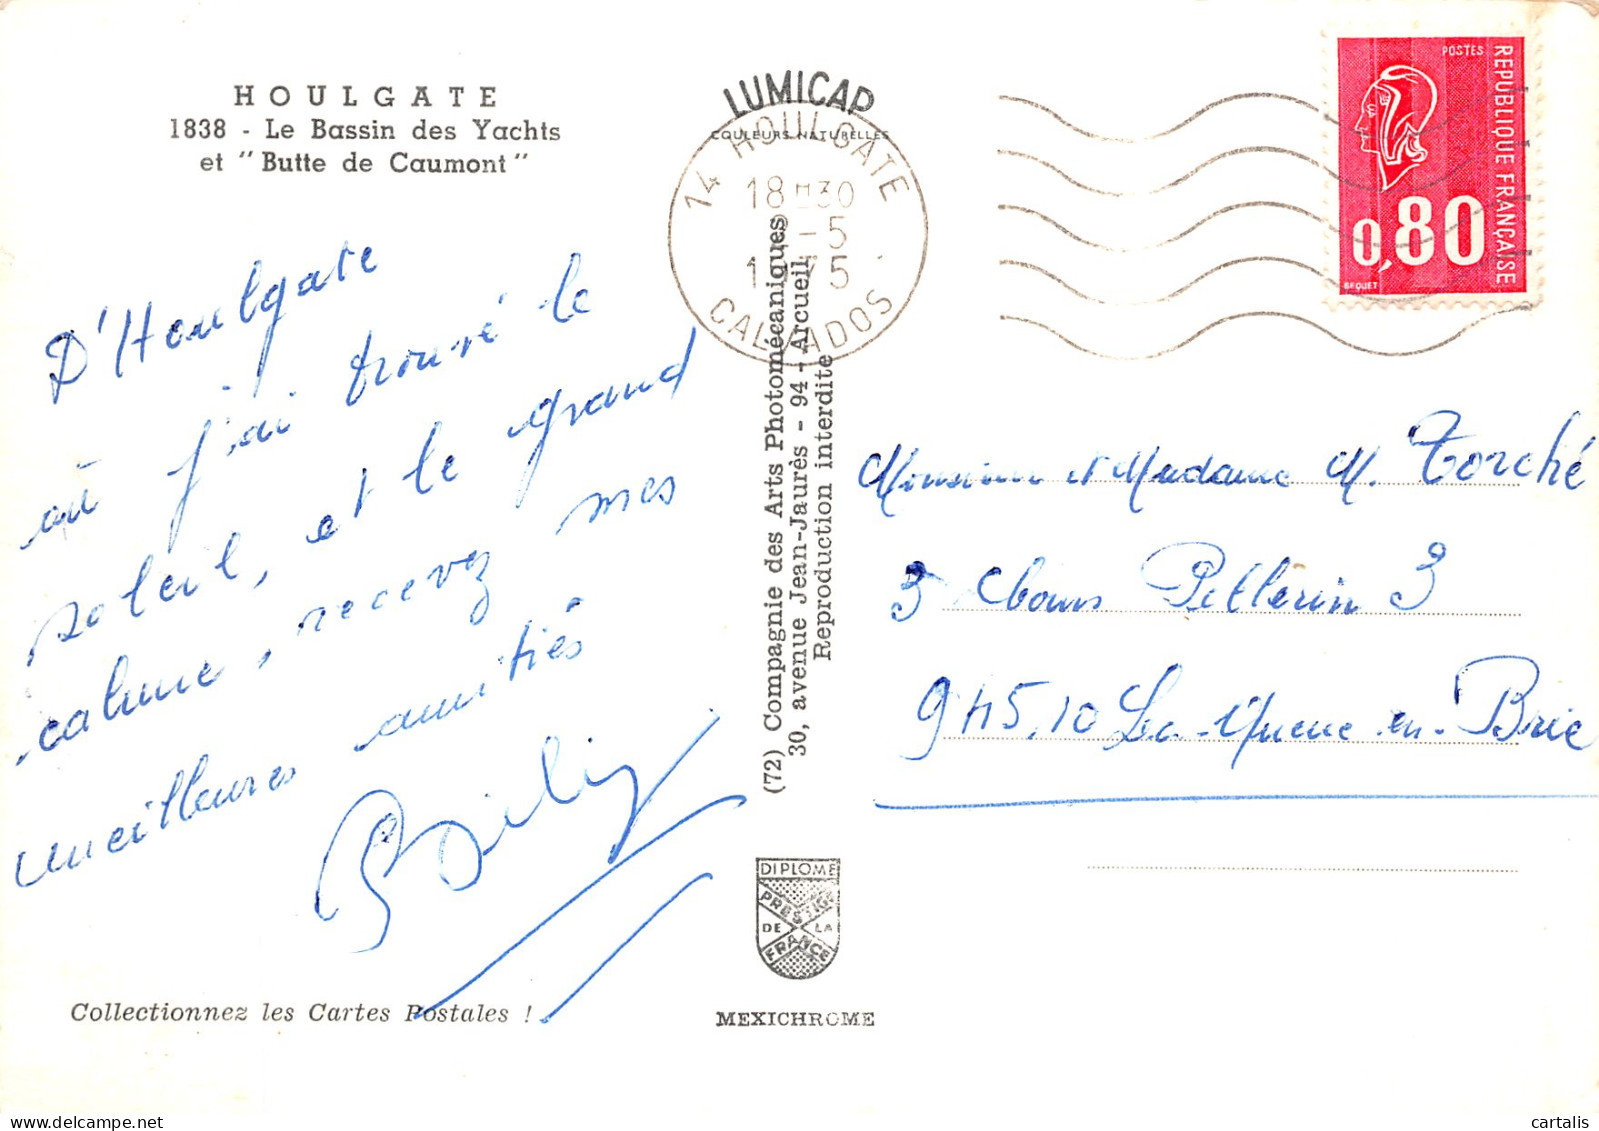 HOULGATE
1838 - Le Bassin des Yachts
et "Butte de Caumont"
D'Houlgate
où j'ai trouvé le
soleil, et le grand
calme, recevez mes
meilleures amitiés
Collectionnez les Cartes Postales !
LUMICAP
COULEURS NATURELLES
14 HOULGATE
18H30
-5
1975
CALVADOS
(72) Compagnie des Arts Photomécaniques
30, avenue Jean-Jaurès - 94 - Arcueil
Reproduction interdite
DIPLOME
PRESTIGE
DE LA
FRANCE
MEXICHROME
POSTES
REPUBLIQUE FRANÇAISE
0,80
BEQUET
Monsieur et Madame M. Torché
3 Cours Pellerin 3
94510 La Queue-en-Brie
cartalis